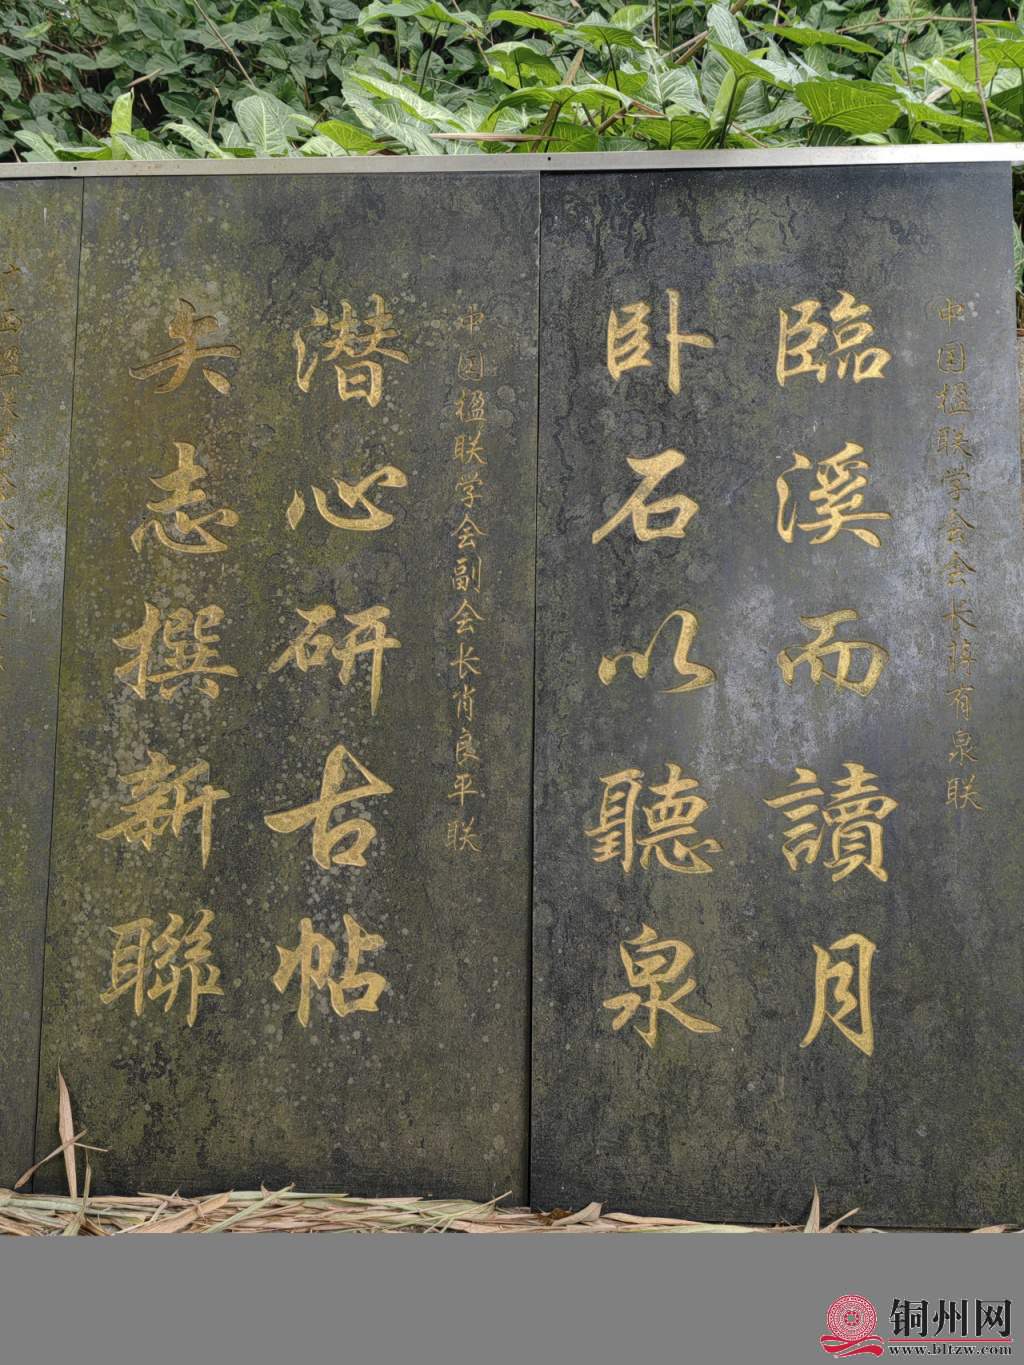 中国楹联学会会长蒋有泉联
臨溪而讀月
卧石以聽泉
中国楹联学会副会长肖良平联
潜心研古帖
矢志撰新聯
铜州网
www.bltzw.com